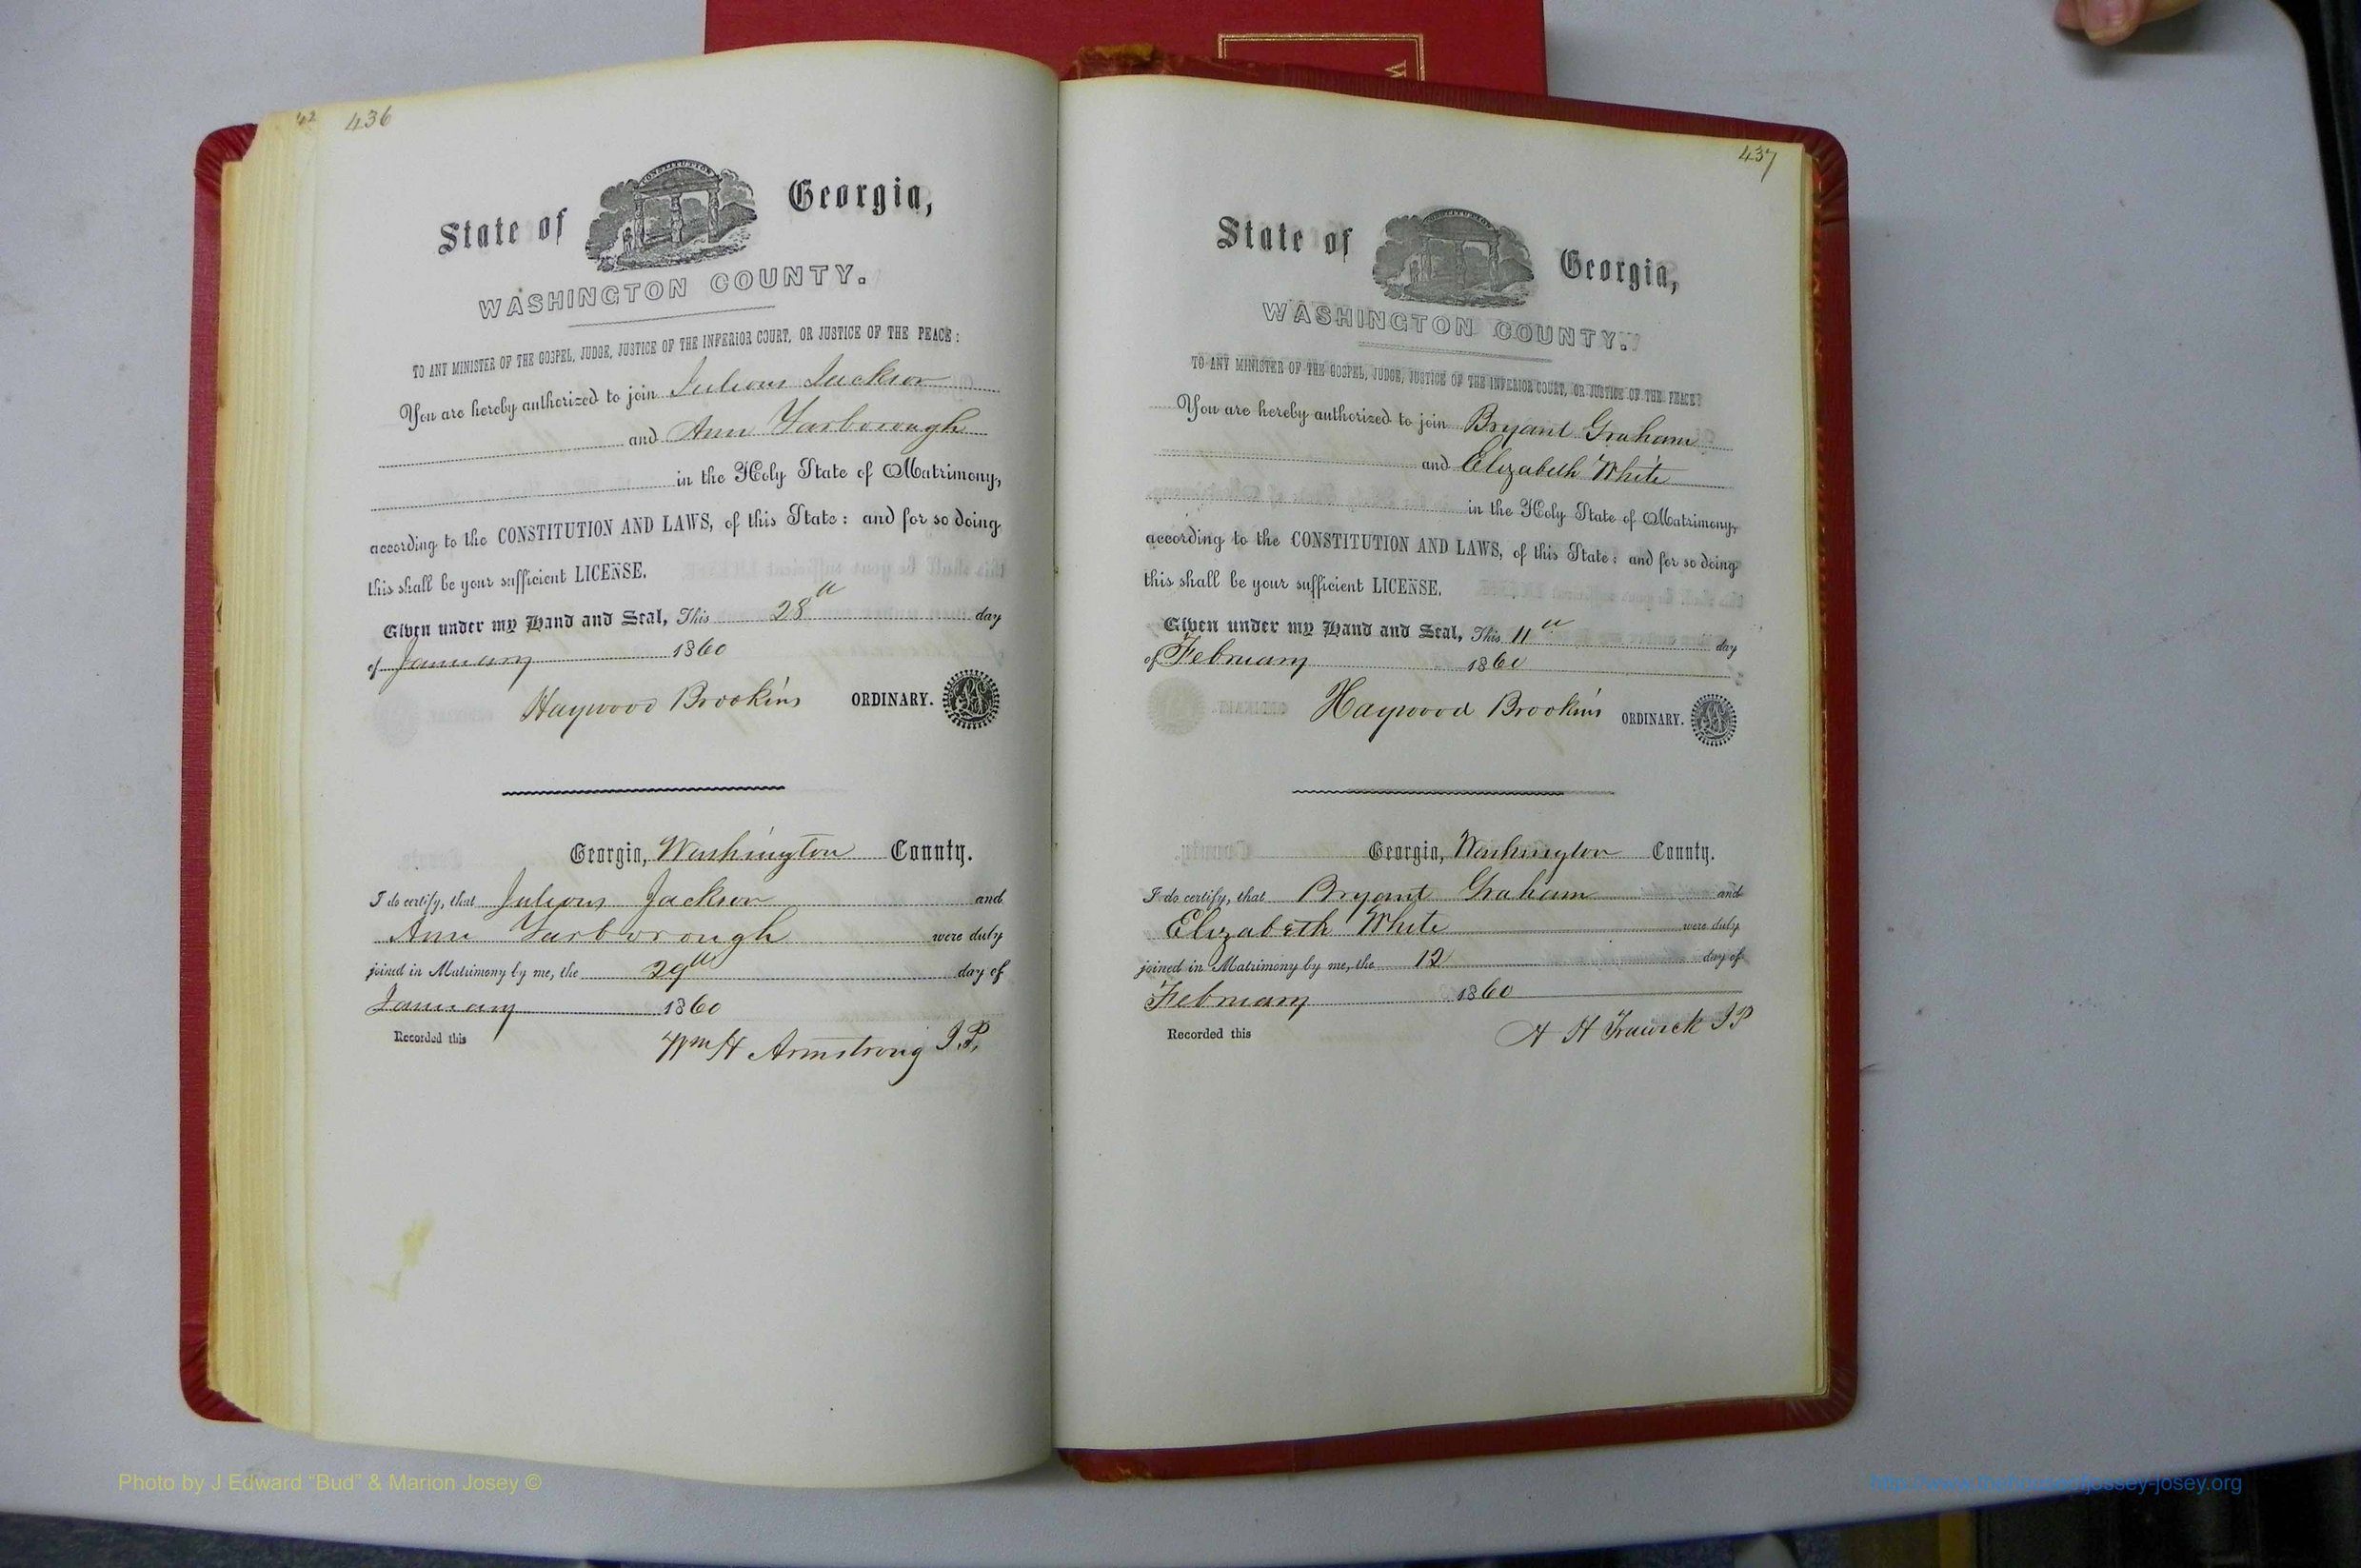 436
State of Georgia,
CONSTITUTION
WASHINGTON COUNTY.
TO ANY MINISTER OF THE GOSPEL, JUDGE, JUSTICE OF THE INFERIOR COURT, OR JUSTICE OF THE PEACE:
You are hereby authorized to join Julious Jackson
and Ann Yarborough
in the Holy State of Matrimony,
according to the CONSTITUTION AND LAWS, of this State: and for so doing
this shall be your sufficient LICENSE.
Given under my Hand and Seal, This 28th day
of January 1860
Haywood Brookins ORDINARY.
Georgia, Washington County.
I do certify, that Julious Jackson and
Ann Yarborough were duly
joined in Matrimony by me, the 29th day of
January 1860
Recorded this Wm H Armstrong J.P.
437
State of Georgia,
CONSTITUTION
WASHINGTON COUNTY.
TO ANY MINISTER OF THE GOSPEL, JUDGE, JUSTICE OF THE INFERIOR COURT, OR JUSTICE OF THE PEACE:
You are hereby authorized to join Bryant Graham
and Elizabeth White
in the Holy State of Matrimony,
according to the CONSTITUTION AND LAWS, of this State: and for so doing
this shall be your sufficient LICENSE.
Given under my Hand and Seal, This 11th day
of February 1860
Haywood Brookins ORDINARY.
Georgia, Washington County.
I do certify, that Bryant Graham and
Elizabeth White were duly
joined in Matrimony by me, the 12 day of
February 1860
Recorded this A H Trawick JP
Photo by J Edward “Bud” & Marion Josey ©